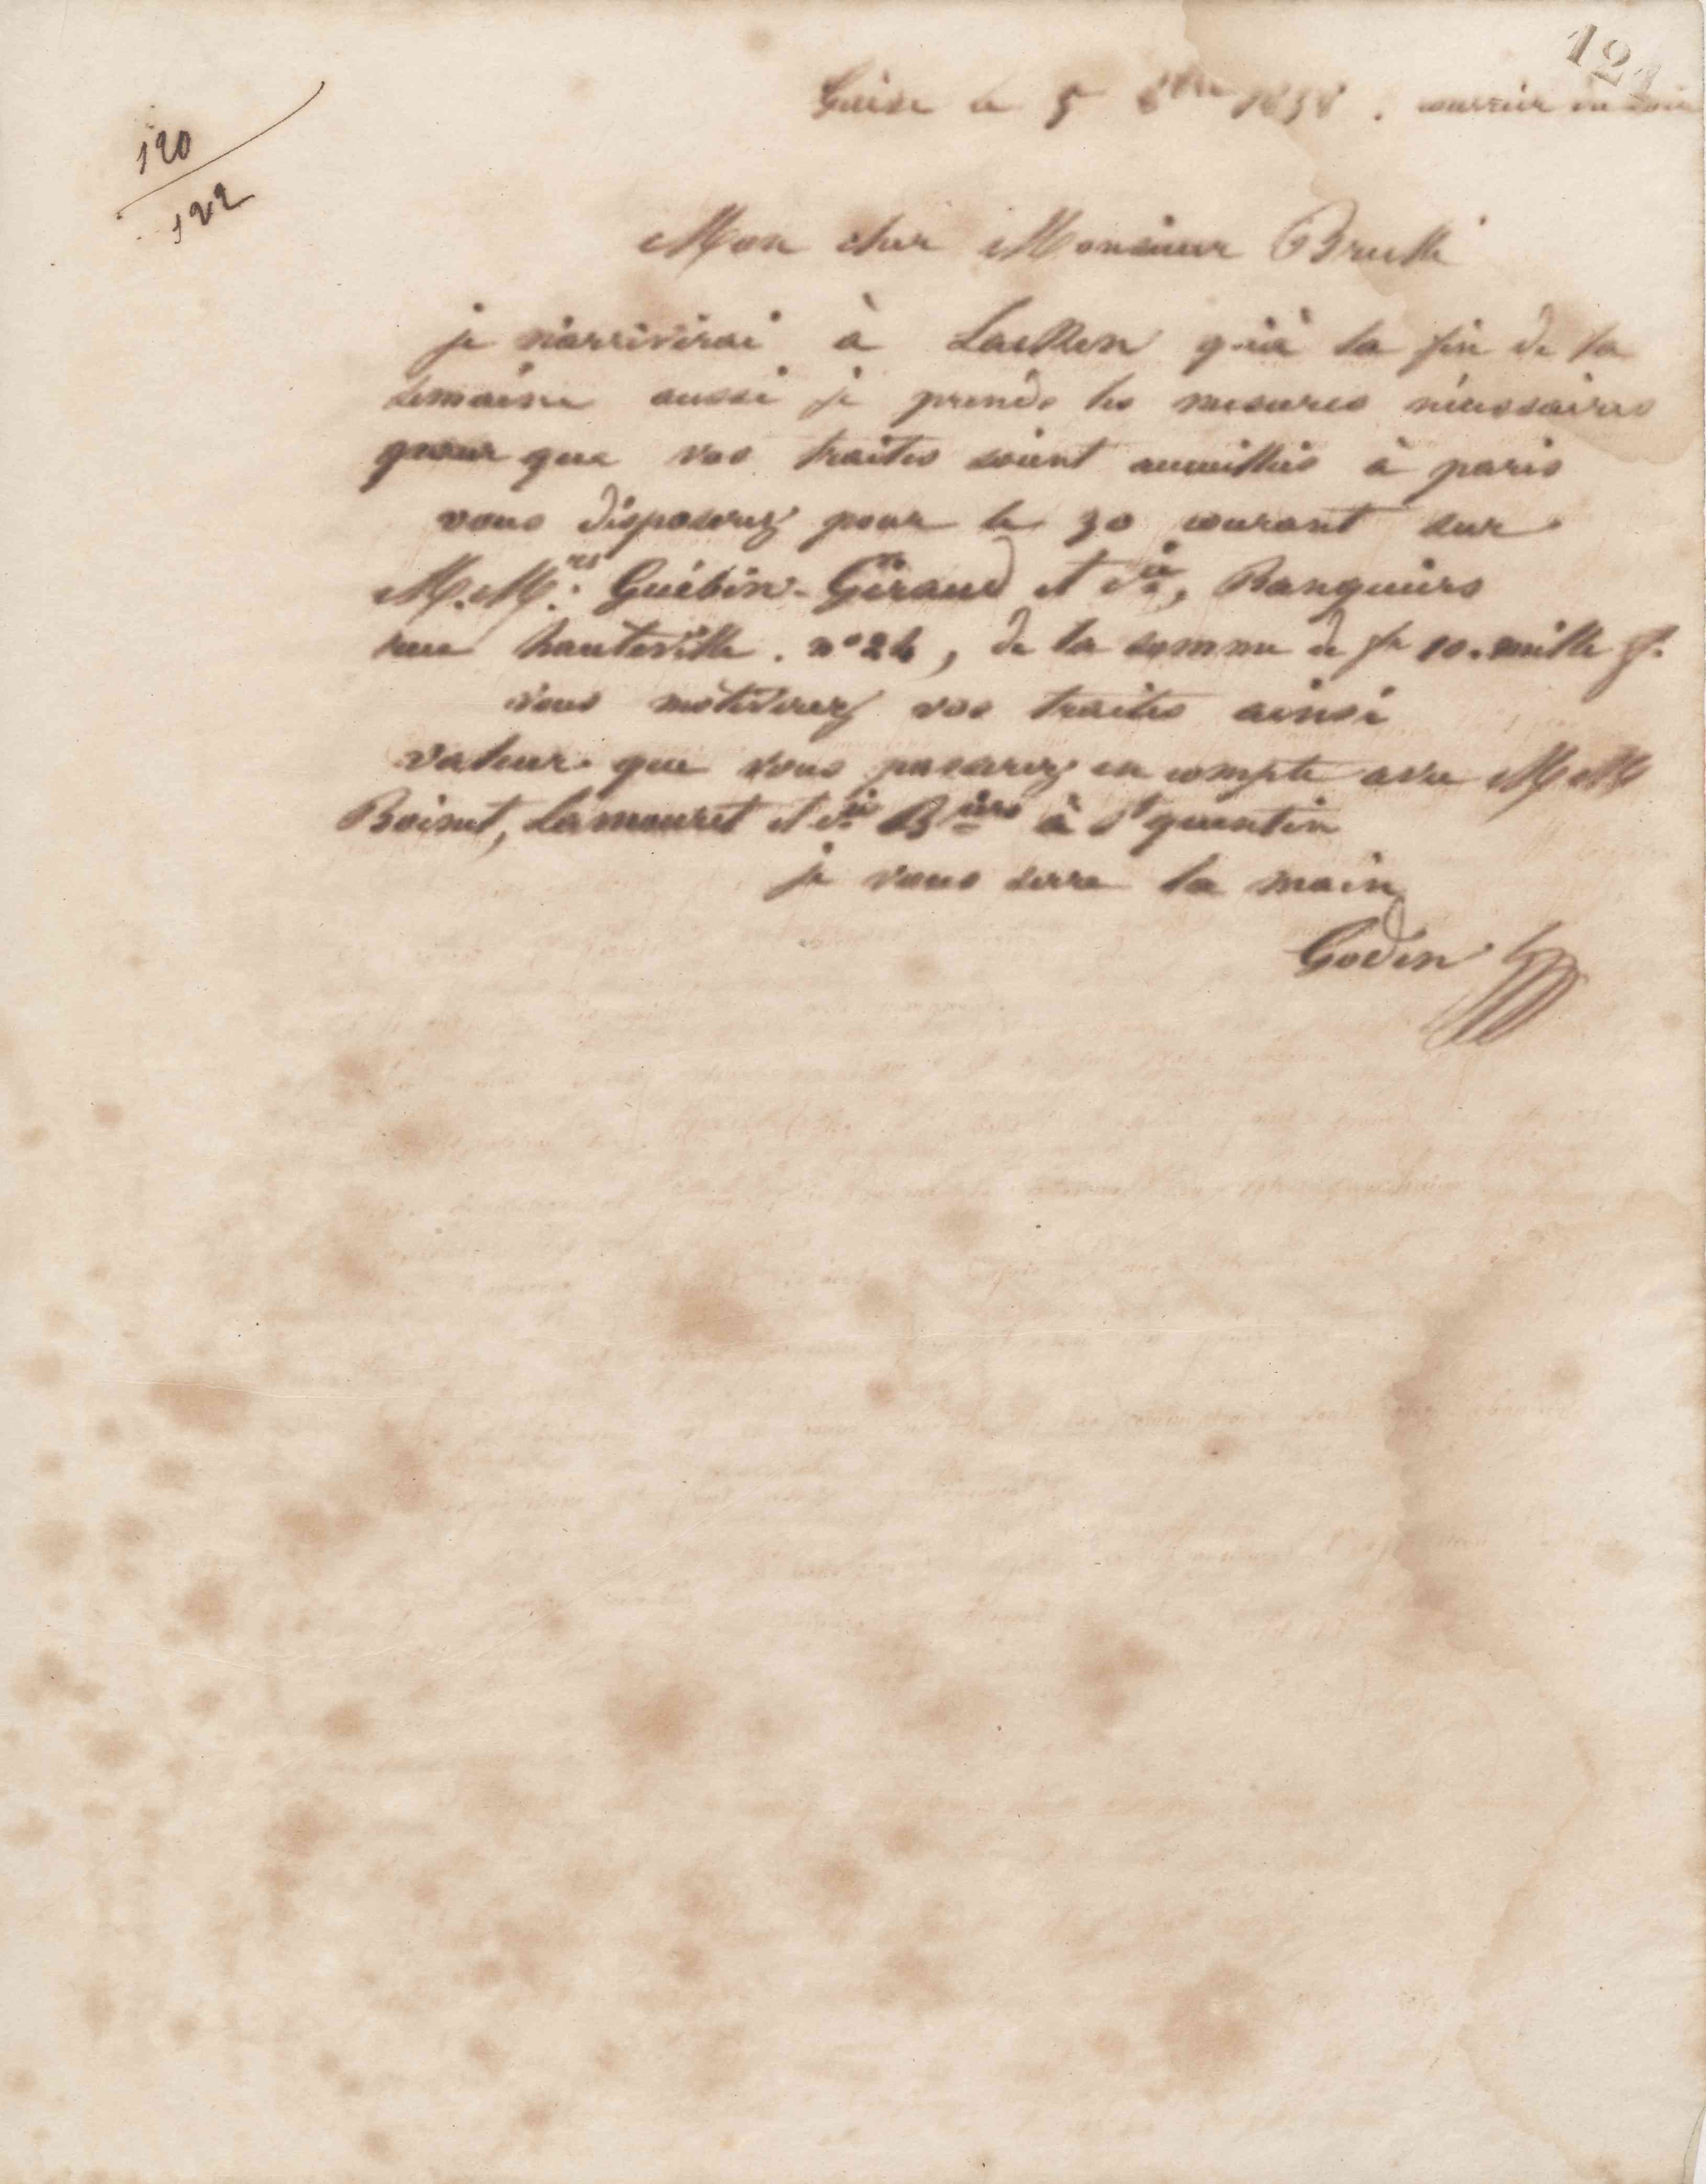 121
120
122
Guise le 5 8bre 1858. courrier du soir
Mon cher Monsieur Brullé
je n'arriverai à Laeken qu'à la fin de la
semaine aussi je prends les mesures nécessaires
pour que vos traites soient accueillies à paris
vous disposerez pour le 30 courant sur
M.Mrs Guébin-Giraud et Cie, Banquiers
rue hauteville. n° 24, de la somme de fr 10. mille fr.
vous motiverez vos traites ainsi
valeur que vous passerez en compte avec M M
Boinet, Lamouret et Cie Biers à St quentin
je vous serre la main
Godin